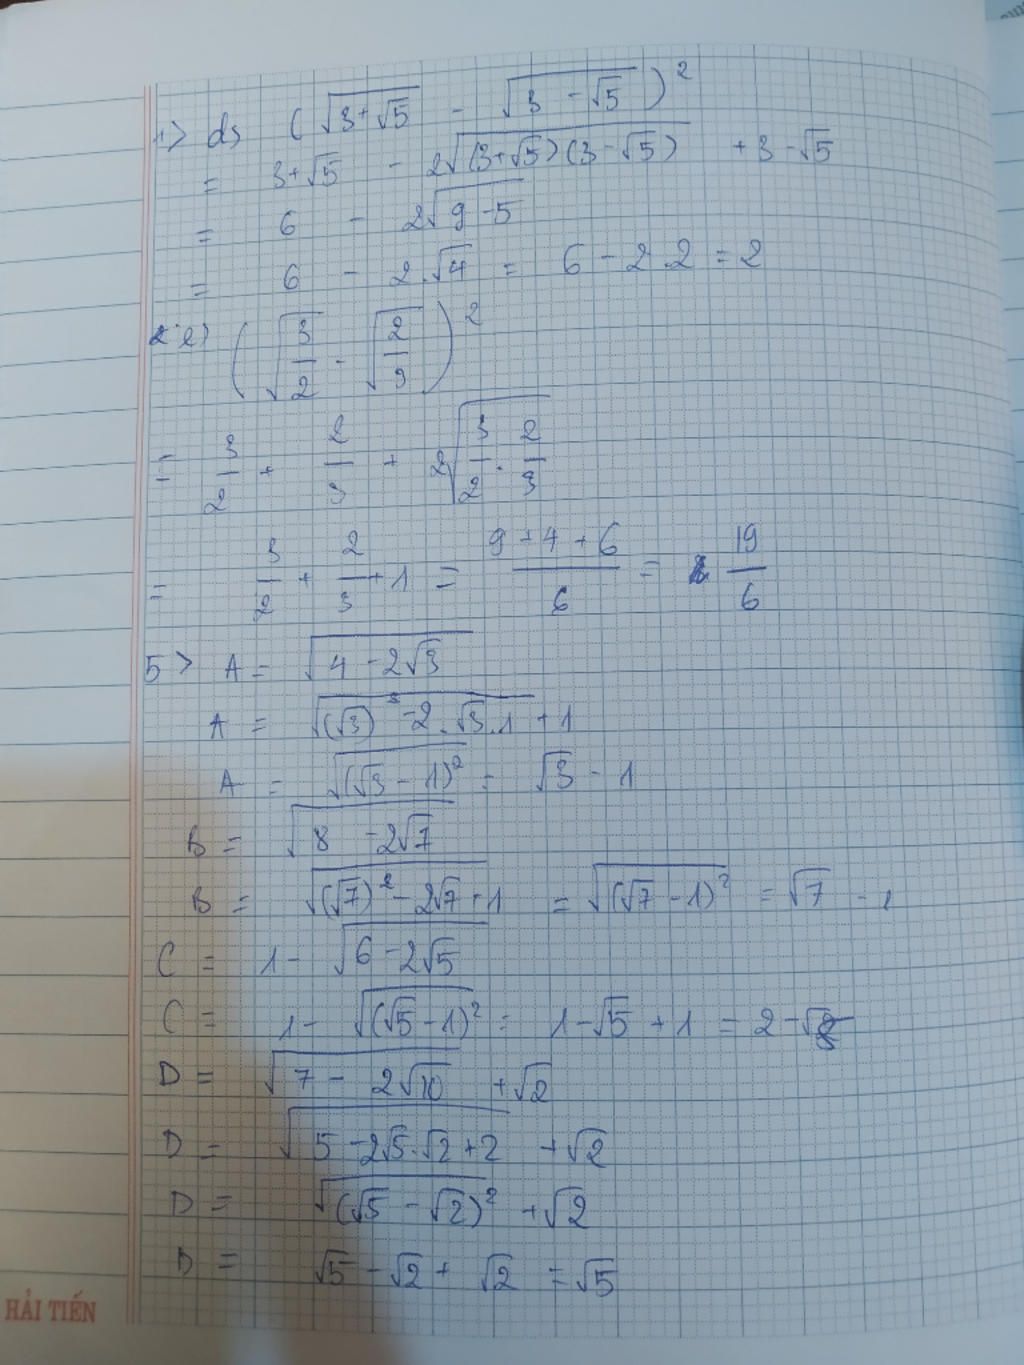 1> d) (√(3+√5) - √(3-√5))²
= 3+√5 - 2√((3+√5)(3-√5)) + 3-√5
= 6 - 2√(9-5)
= 6 - 2.√4 = 6 - 2.2 = 2
e) (√(3/2) - √(2/3))²
= 3/2 + 2/3 + 2√(3/2 . 2/3)
= 3/2 + 2/3 + 1 = (9+4+6)/6 = 19/6
5> A = √(4-2√3)
A = √((√3)² - 2.√3.1 + 1
A = √((√3-1)²) = √3 - 1
B = √(8-2√7)
B = √((√7)² - 2√7 + 1) = √((√7-1)²) = √7 - 1
C = 1 - √(6-2√5)
C = 1 - √((√5-1)²) = 1-√5 + 1 = 2-√5
D = √(7-2√10) + √2
D = √(5-2√5.√2+2) + √2
D = √((√5-√2)²) + √2
D = √5-√2 + √2 = √5
HẢI TIẾN